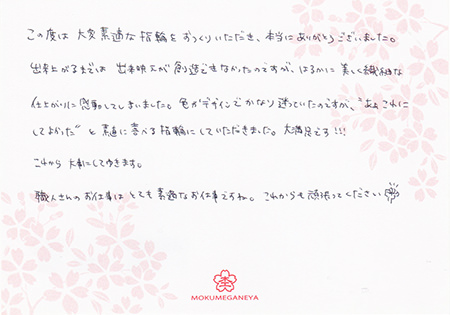 この度は 大変素適な指輪をおつくりいただき、本当にありがとうございました。
出来上がるまでは 出来映えが創造できなかったのですが、はるかに美しく繊細な
仕上がりに感動してしまいました。色かデザインでかなり迷っていたのですが、"あぁこれに
してよかった"と素直に喜べる指輪にしていただきました。大満足です!!!
これから大事にしてゆきます。
職人さんのお仕事はとても素適なお仕事ですね。これからも頑張ってください
MOKUMEGANEYA